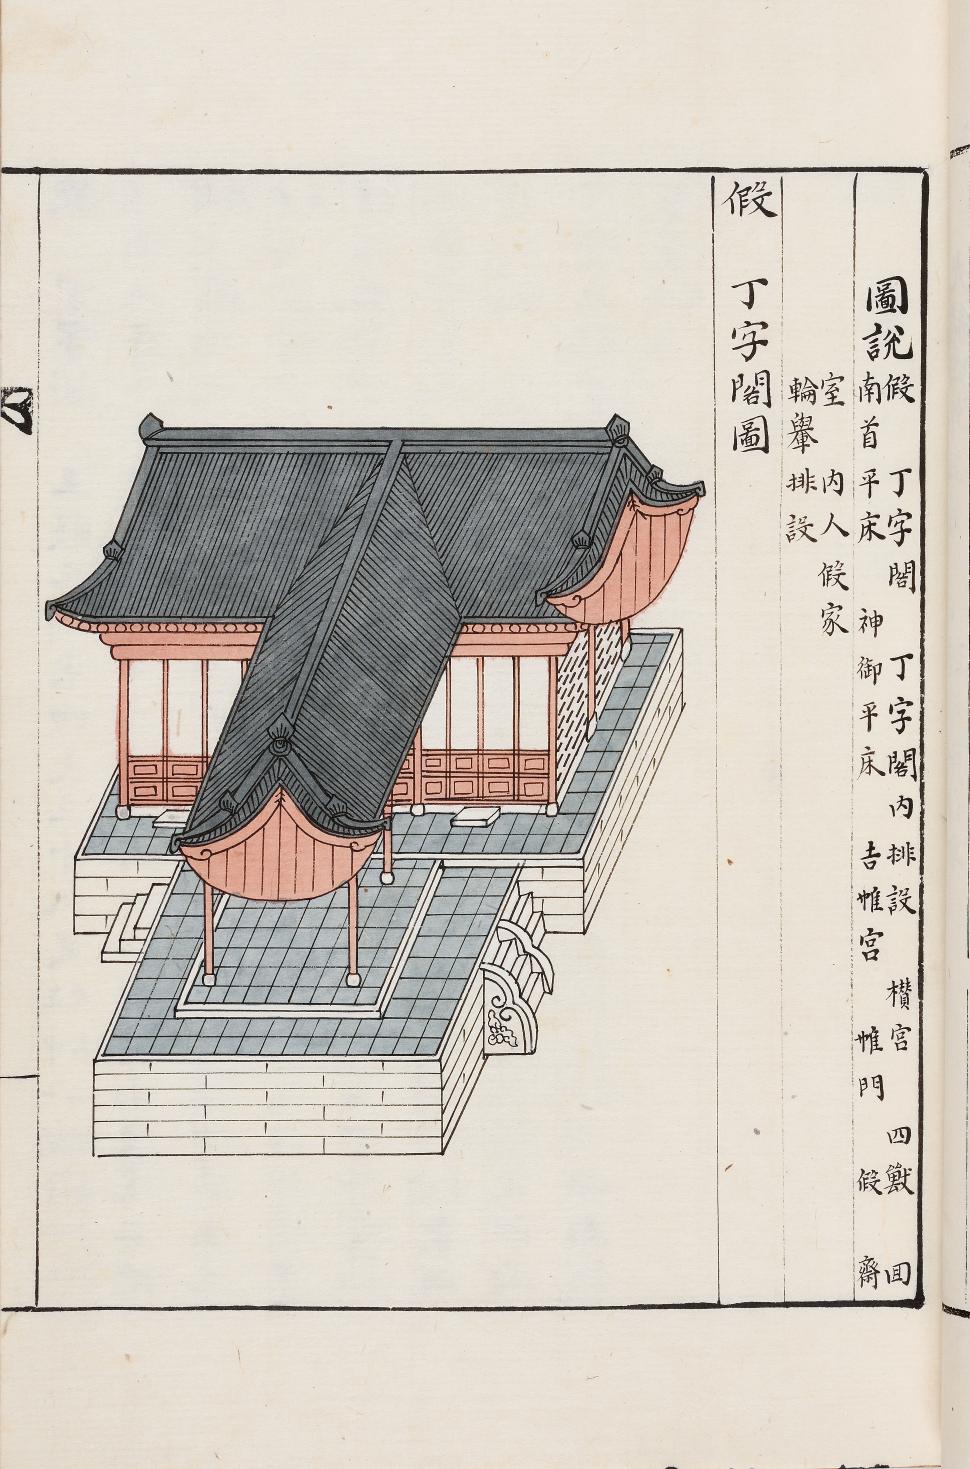 圖說
假 丁字閣 丁字閣內排設 欑宮 四獸 囬
南首平床 神御平床 吉帷宮 帷門 假 齋
室 內人假家
輪轝排設
假 丁字閣圖